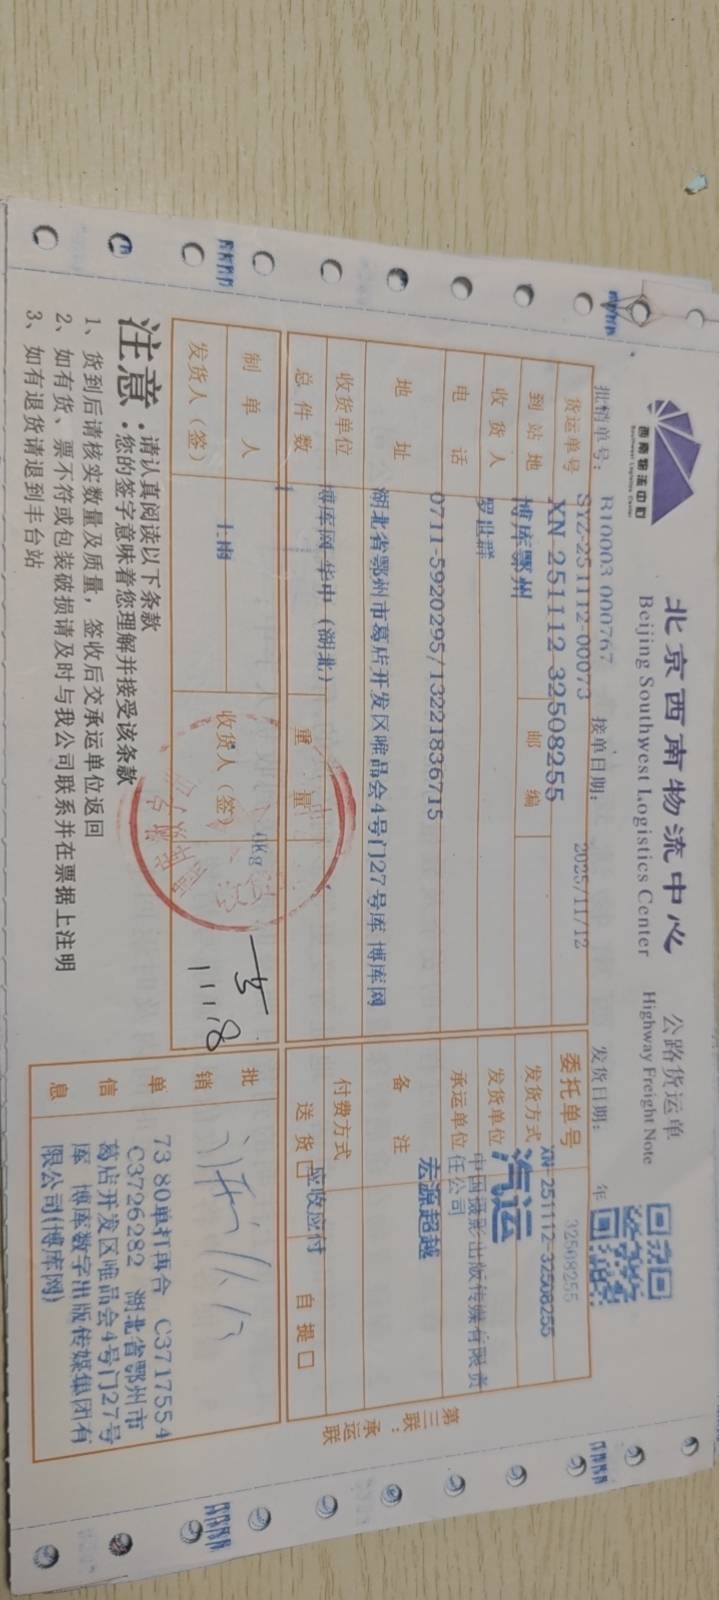 西南物流中心
Southwest Logistics Center
北京西南物流中心 公路货运单
Beijing Southwest Logistics Center Highway Freight Note
批销单号: B10003 000767 接单日期: 2025/11/12 发货日期: 年
SYZ-251112-00073 32508255
货运单号 XN-251112-32508255 委托单号 XN-251112-32508255
到站地 博库鄂州 邮编 发货方式 汽运
收货人 罗世群 发货单位 中国摄影出版传媒有限责任公司
电话 0711-5920295/13221836715 承运单位 宏源超越
地址 湖北省鄂州市葛店开发区唯品会4号门27号库 博库网 备注
收货单位 博库网 华中（湖北） 付费方式 应收应付
总件数 1 重量 0kg 送货□ 自提□
制单人
发货人（签） 收货人（签） 11.18
第三联：承运联
批销单信息
73 80单打再合 C3717554
C3726282 湖北省鄂州市
葛店开发区唯品会4号门27号
库 博库数字出版传媒集团有
限公司(博库网)
注意：请认真阅读以下条款
您的签字意味着您理解并接受该条款
1、货到后请核实数量及质量，签收后交承运单位返回
2、如有货、票不符或包装破损请及时与我公司联系并在票据上注明
3、如有退货请退到丰台站